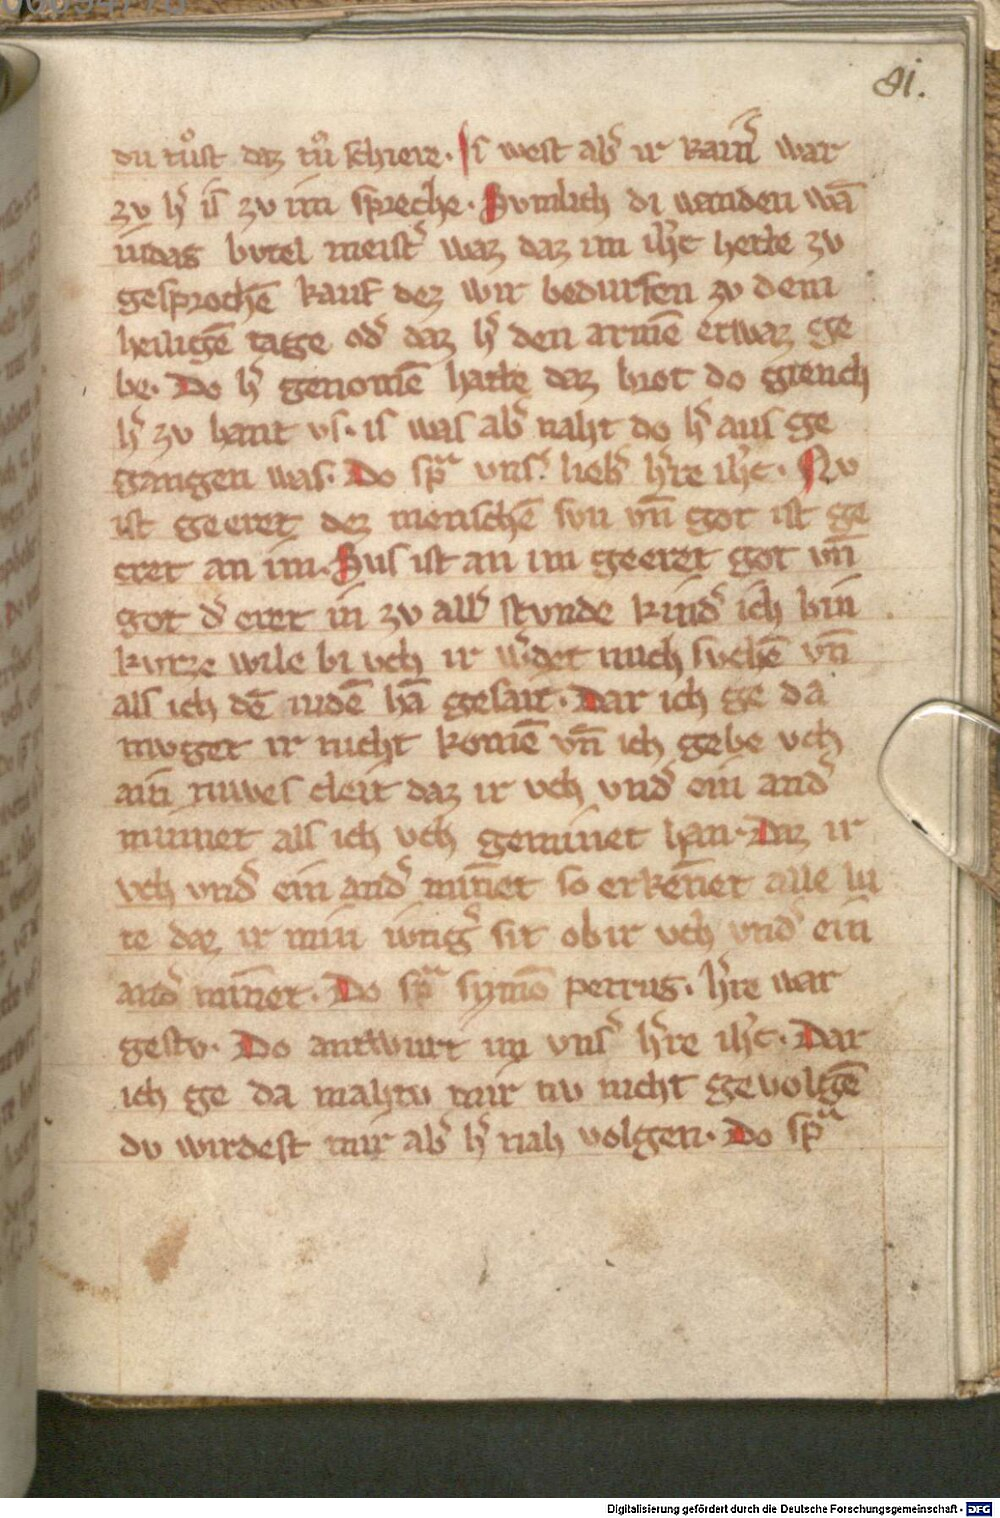 91.
du tuͦst daz tuͦ schiere. Iz west ab᷑ ir kain᷑ war
zv h᷑ iſ zv im spreche. Svmlich di wanden wā
iudas bvtel meist᷑ waz daz im ih᷑c hette zv
gesprochē kauf dez wir bedurfen zv dem
heiligē tage od᷑ daz h᷑ den armē etwaz ge
be. Do h᷑ genomē hatte daz brot do giench
h᷑ zv hant vſ. iſ was ab᷑ naht do h᷑ aus ge
gangen was. Do spᷓ vns᷑ lieb᷑ h᷑re ih᷑c. Nv
ist geeret dez menschē svn vn̄ got ist ge
eret an im. Sus ist an im geeret got vn̄
got d᷑ eret in zv all᷑ stvnde kind᷑ ich bin
kvrze wile bi vch ir w᷑det mich svchē vn̄
als ich dē iudē hā gesait. Dar ich ge da
mvget ir nicht komē vn̄ ich gebe vch
ain nuwes cleit daz ir vch vnd᷑ ein and᷑
minnet als ich vch geminnet han. Daz ir
vch vnd᷑ ein and᷑ min̄et so erken̄et alle lu
te daz ir min iung᷑ sit ob ir vch vnd᷑ ein
and᷑ min̄et. Do spᷓ symō petrus. h᷑re war
gestv. Do antwurt im vns᷑ h᷑re ih᷑c. Dar
ich ge da mahtv mir nv nicht gevolgē
dv wirdest mir ab᷑ h᷑ nah volgen. Do spᷓ
Digitalisierung gefördert durch die Deutsche Forschungsgemeinschaft - DFG